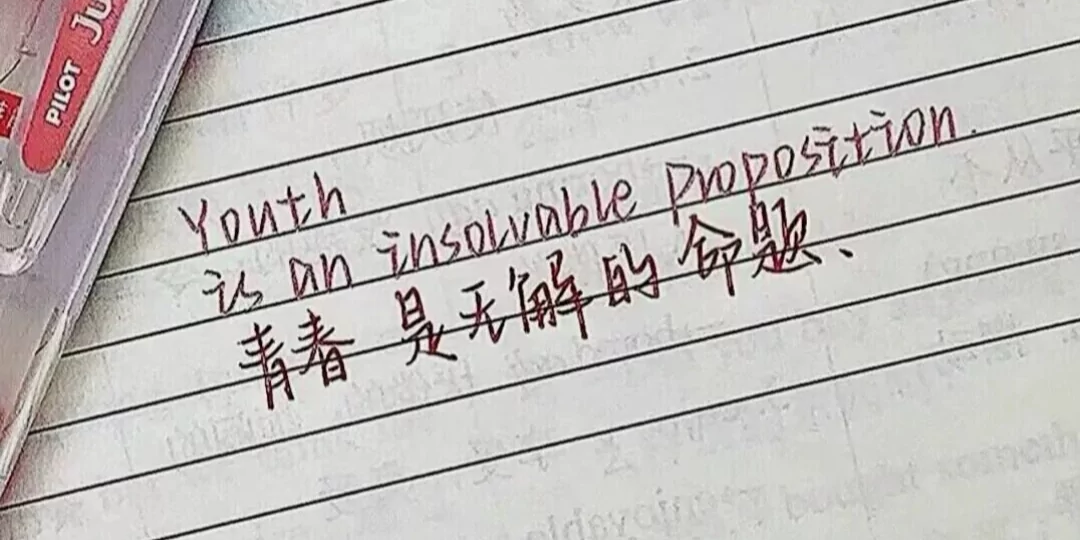 PILOT Ju
Youth
is an insolvable proposition.
青春是无解的命题、